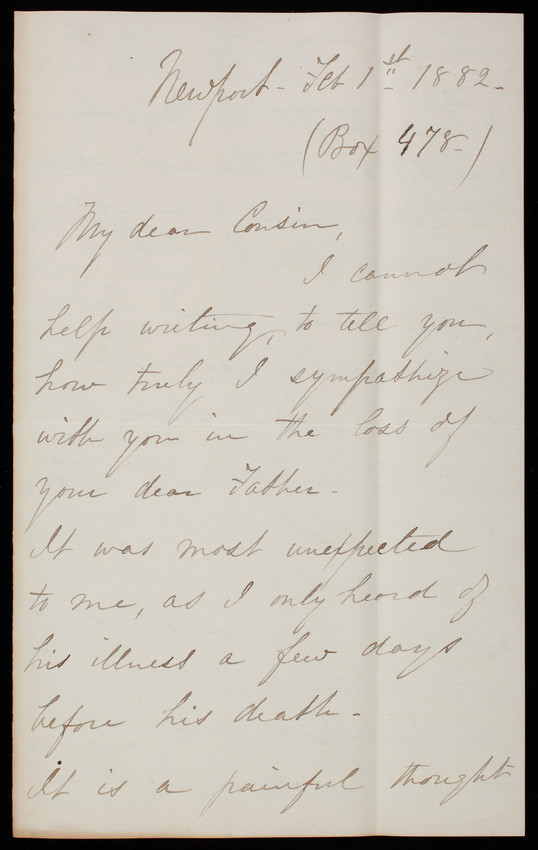 Newport - Feb 1st 1882 -
(Box 478 - )
My dear Cousin,
I cannot
help writing, to tell you,
how truly I sympathize
with you in the loss of
your dear Father -
It was most unexpected
to me, as I only heard of
his illness a few days
before his death -
It is a painful thought